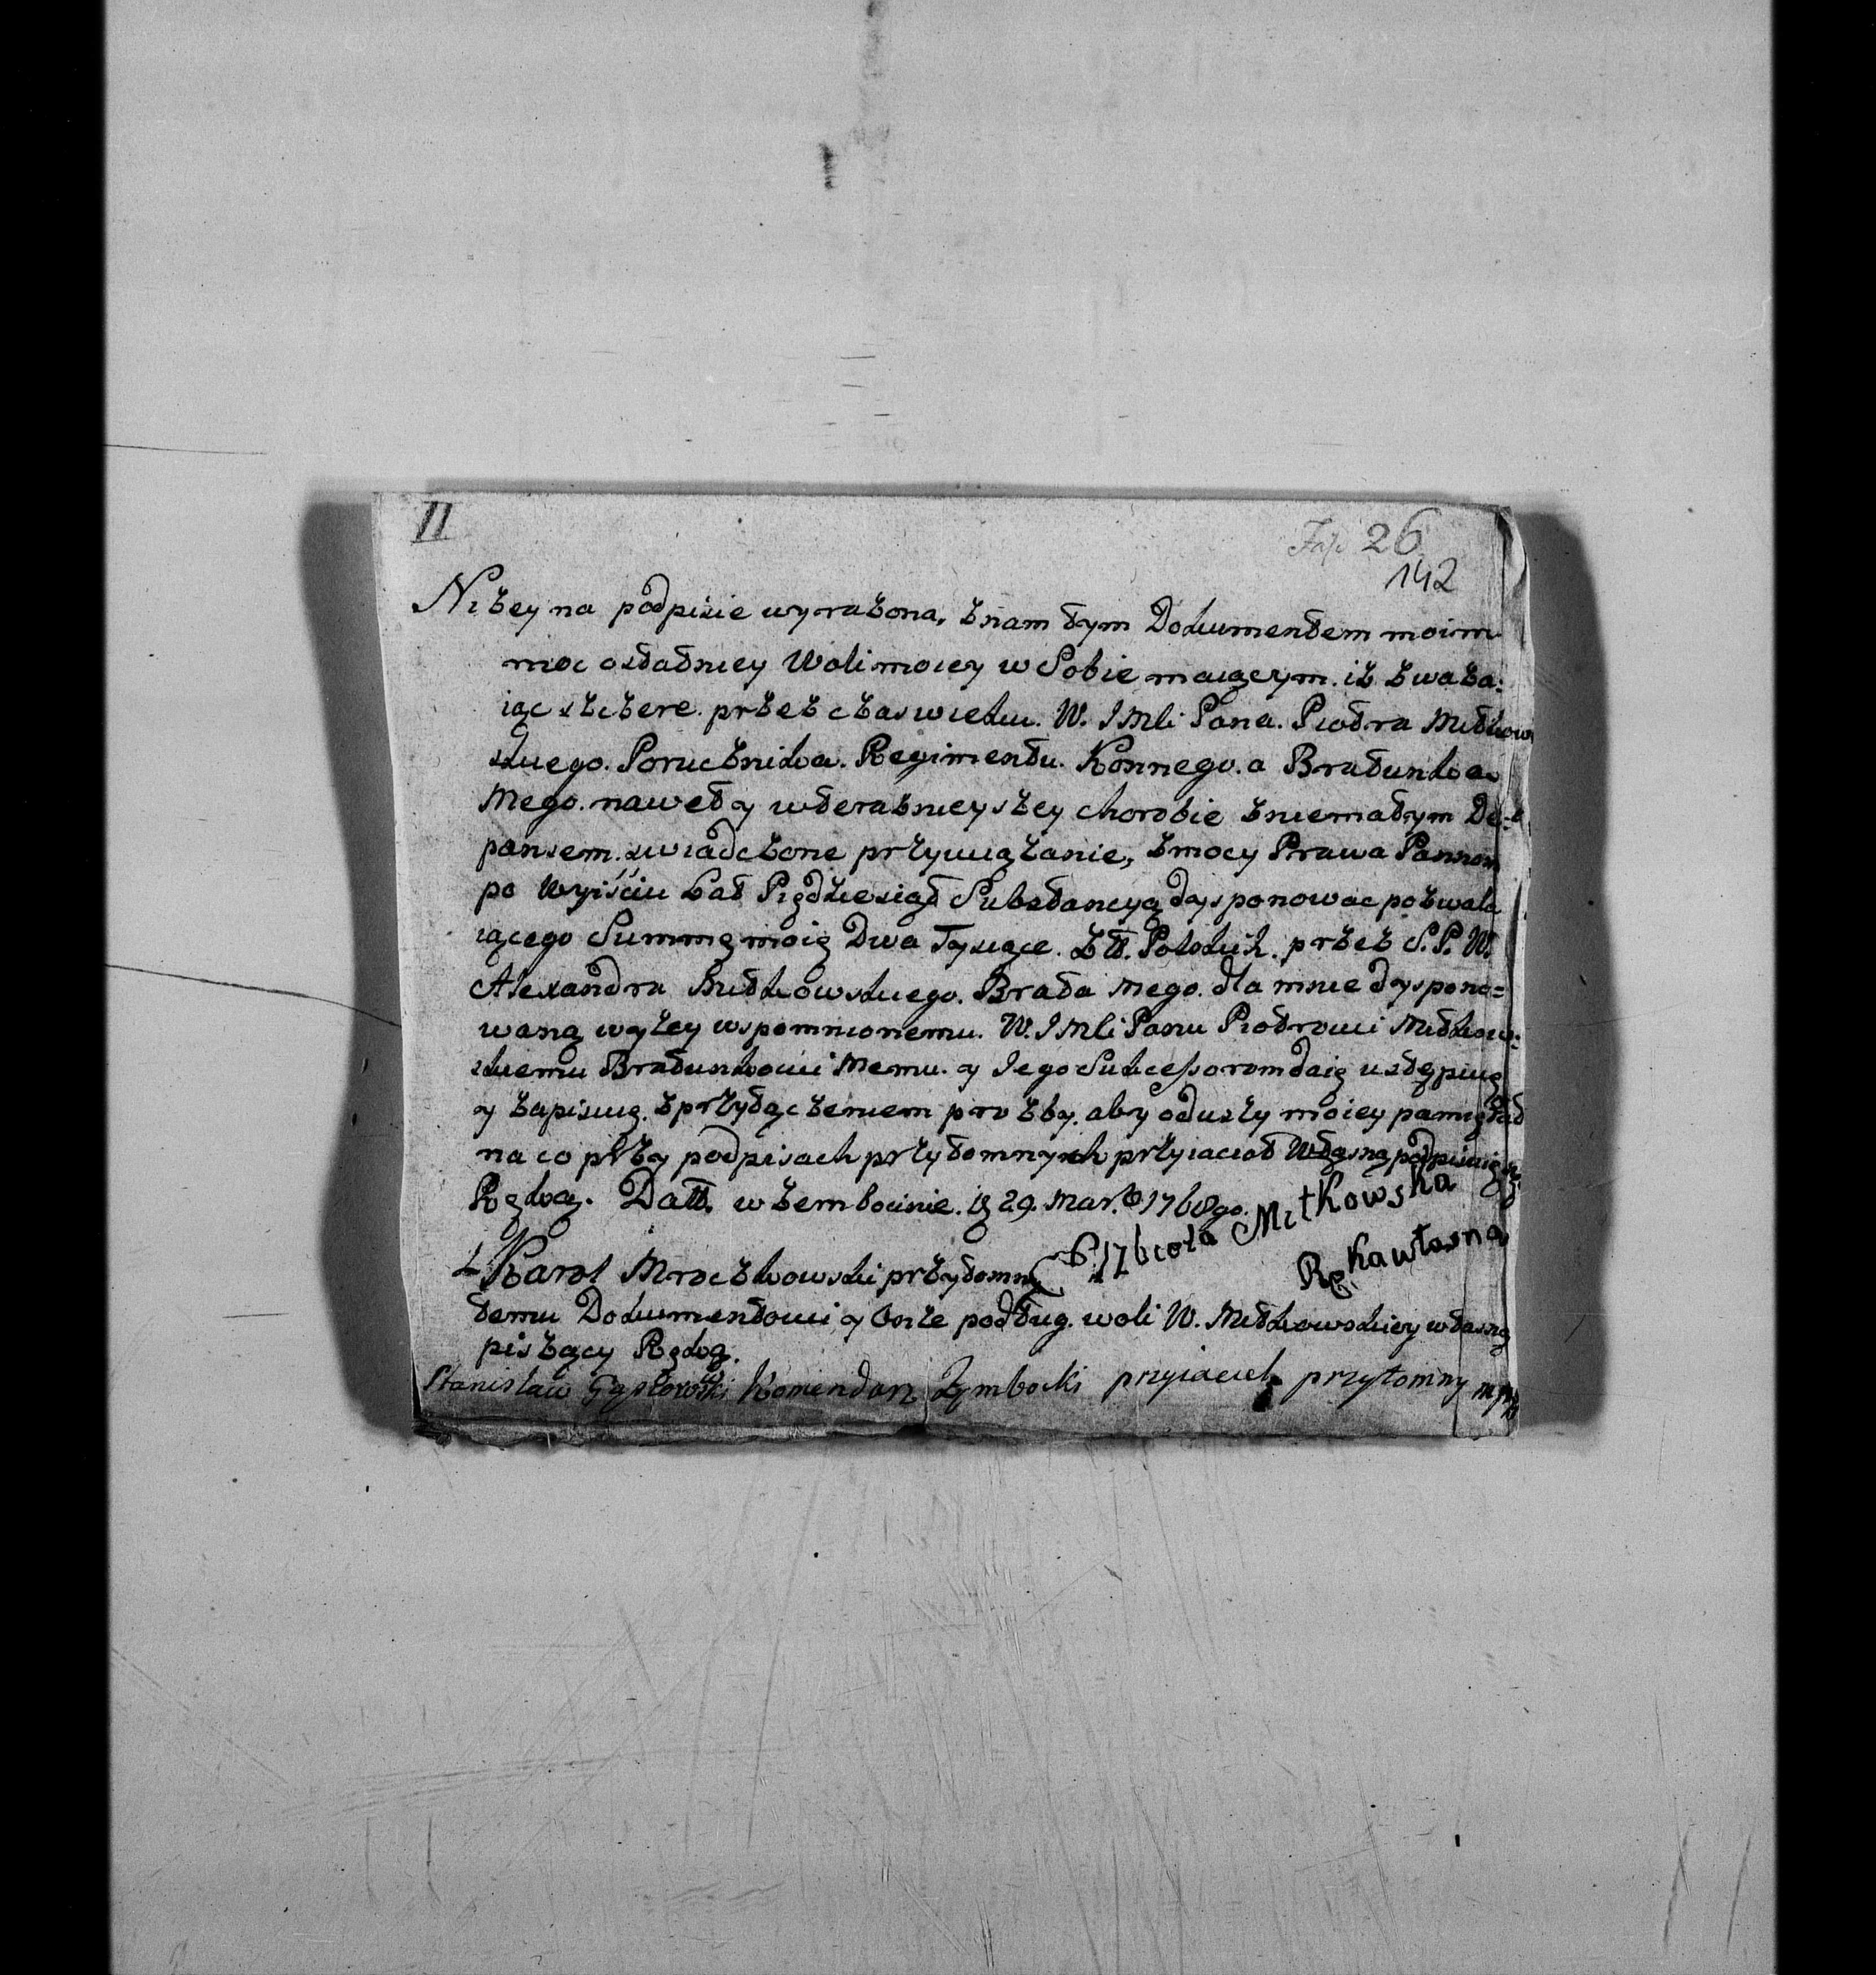 II
Fas 26
142
Niżey na podpisie wyrażona, znam tym Dokumentem moim
moc ostatniey Woli moiey w Sobie maiącym. iż zważa:
iąc szczere. przez czas wielki. W. JMci Pana. Piotra Mitkow
skiego. Porucznika. Regimentu. Konnego. a Bratunka
Mego. nawet y w teraznieyszey chorobie z niemałym De:
pansem. swiadczone przywiązanie, z mocy Prawa Pannom
po Wyiściu Lat Pięдziesiąt Substancyą dysponowac pozwala
iącego Summę moię Dwa Tysiące. Złł. Polskich. przez S. P. W.
Alexandra Mitkowskiego. Brata Mego. dla mnie dyspono=
waną wyżey wspomnionemu. W. JMci Panu Piotrowi Mitkow:
skiemu Bratunkowi Memu. y Jego Sukcessorom daię ustępuię
y zapisuię. z przyłączeniem prozby. aby o duszy moiey pamiętał
na co przy podpisach przytomnych przyiaciół Własną podpisuię się
Ręką. Datt. w Zembocinie. d 29. Mar. 1768go.
Mitkowska
Ręka własną
Karol Mroczkowski przytomny
temu Dokumentowi y onże podług. woli W. Mitkowskiey własną
piszący Ręką.
Stanisław Komendarz Zymbocki przyiaciel przytomny mp